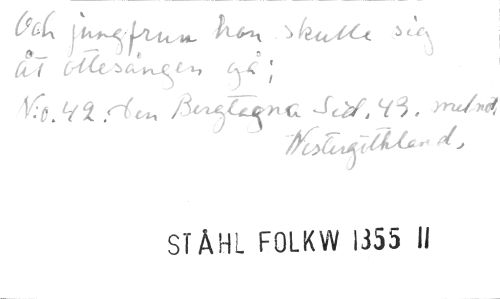 Och jungfrun hon skulle sig
åt ottesången gå;
N:o. 42. den Bergtagna Sid. 43. melnd.
Westergöthland.
STÅHL FOLKW 1355 II